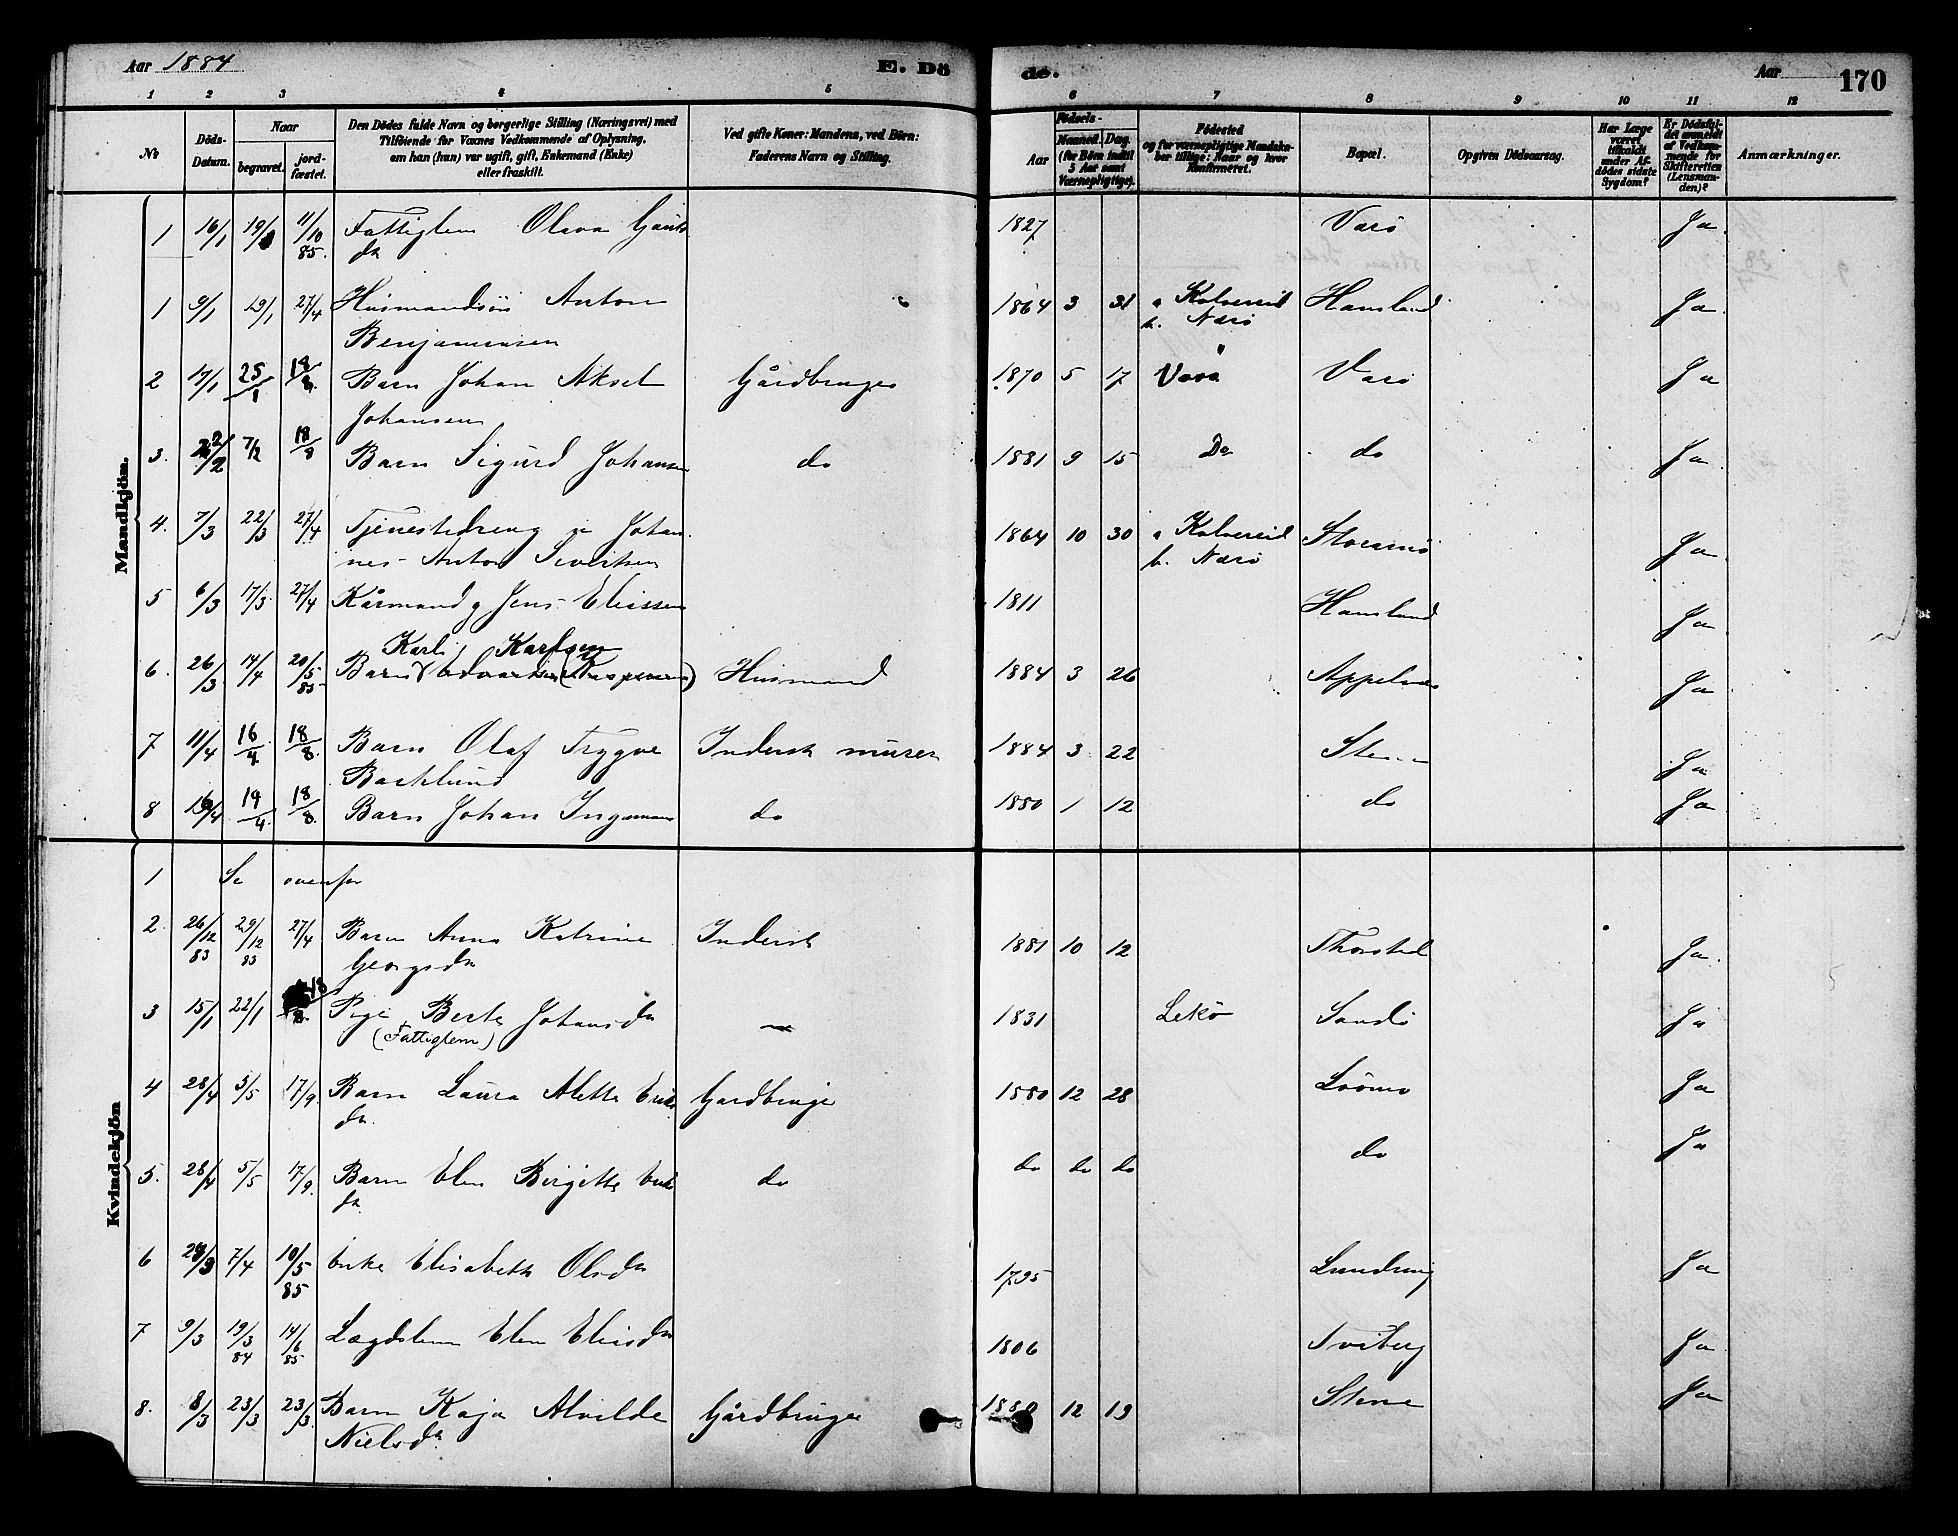 Aar 1884 E. Dö
de. Aar 170
1 2 3 4 5 6 7 8 9 10 11 12
No
Döds-Datum.
Naar
begravet.
jord-fæstet.
Den Dödes fulde Navn og borgerlige Stilling (Næringsvei) med
Tilföiende for Voxnes Vedkommende af Oplysning,
om han (hun) var ugift, gift, Enkemand (Enke)
eller fraskilt.
Ved gifte Koner: Mandens, ved Börn:
Faderens Navn og Stilling.
Födsels-
Aar
Maaned. Dag.
(for Börn indtil
5 Aar samt
Værnepligtige).
Födested
og for værnepligtige Mandska-
ber tillige: Naar og hvor
konfirmeret.
Bopæl.
Opgiven Dödsaarsag.
Har Læge
været
tilkaldt
under Af-
dödes sidste
Sygdom?
Er Dödsfal-
det anmeldt
af Vedkom-
mende for
Skifteretten
(Lensman-
den)?
Anmærkninger.
Mandkjön.
1 16/1 19/1 11/10 85. Fattiglem Olava 1827 Værö Ja.
da
1 9/1 19/1 27/4 Husmandsön Anton 1864 3 31 a Kolvereid Hamsland Ja.
Benjaminsen b. Nærö
2 17/1 25/1 18/8. Barn Johan Aksel Gårdbruger 1870 5 17 Værö Ja
Johansen
3. 7/2 18/8 Barn Sigurd Johansen do 1881 9 15 Do do Ja.
4. 7/3 22/3 27/4 Tjenestedreng u Johan- 1864 10 30 a Kolvereid Ja.
nes Anton Sivertsen b. Nærö
5 6/3 17/3 27/4 Kårmand g Jens Eliassen 1811 Hamsland Ja.
Karli Karlsen
6. 26/3 14/4 20/5 85 Barn Edvardsen (Kaspersen) Husmand 1884 3 26 Appelvær Ja
7 11/4 16/4 18/8. Barn Olaf Trygve Inderst murer 1884 3 22 Ja
Backlund
8 16/4 19/4 18/8. Barn Johan do 1880 1 12 do Ja
Kvindekjön
1 Se ovenfor
2. 26/12 83 29/12 83 27/4 Barn Anna Katrine Inderst 1881 10 12 Thorsted Ja.
Georgsda
3 15/1 22/1 18/8. Pige Berte Johansda — 1831 Lekö Sandö Ja
(Fattiglem)
4 28/4 5/5 17/9. Barn Laura Alette Eriks Gardbruge 1880 12 28 Ja
da.
5. 28/4 5/5 17/9. Barn Elen Birgitte Eriks do do do do do Ja
da.
6 24/3 7/4 10/5 85 Enke Elisabeth Olsda 1795 Lundring Ja
7 9/3 19/3 84 14/6 85 Lægdslem Elen Eliasda 1806 Tviberg Ja.
8. 8/3 23/3 23/3. Barn Kaja Alvilde Gårdbruger 1880 12 19 Stene Ja
Nielsda